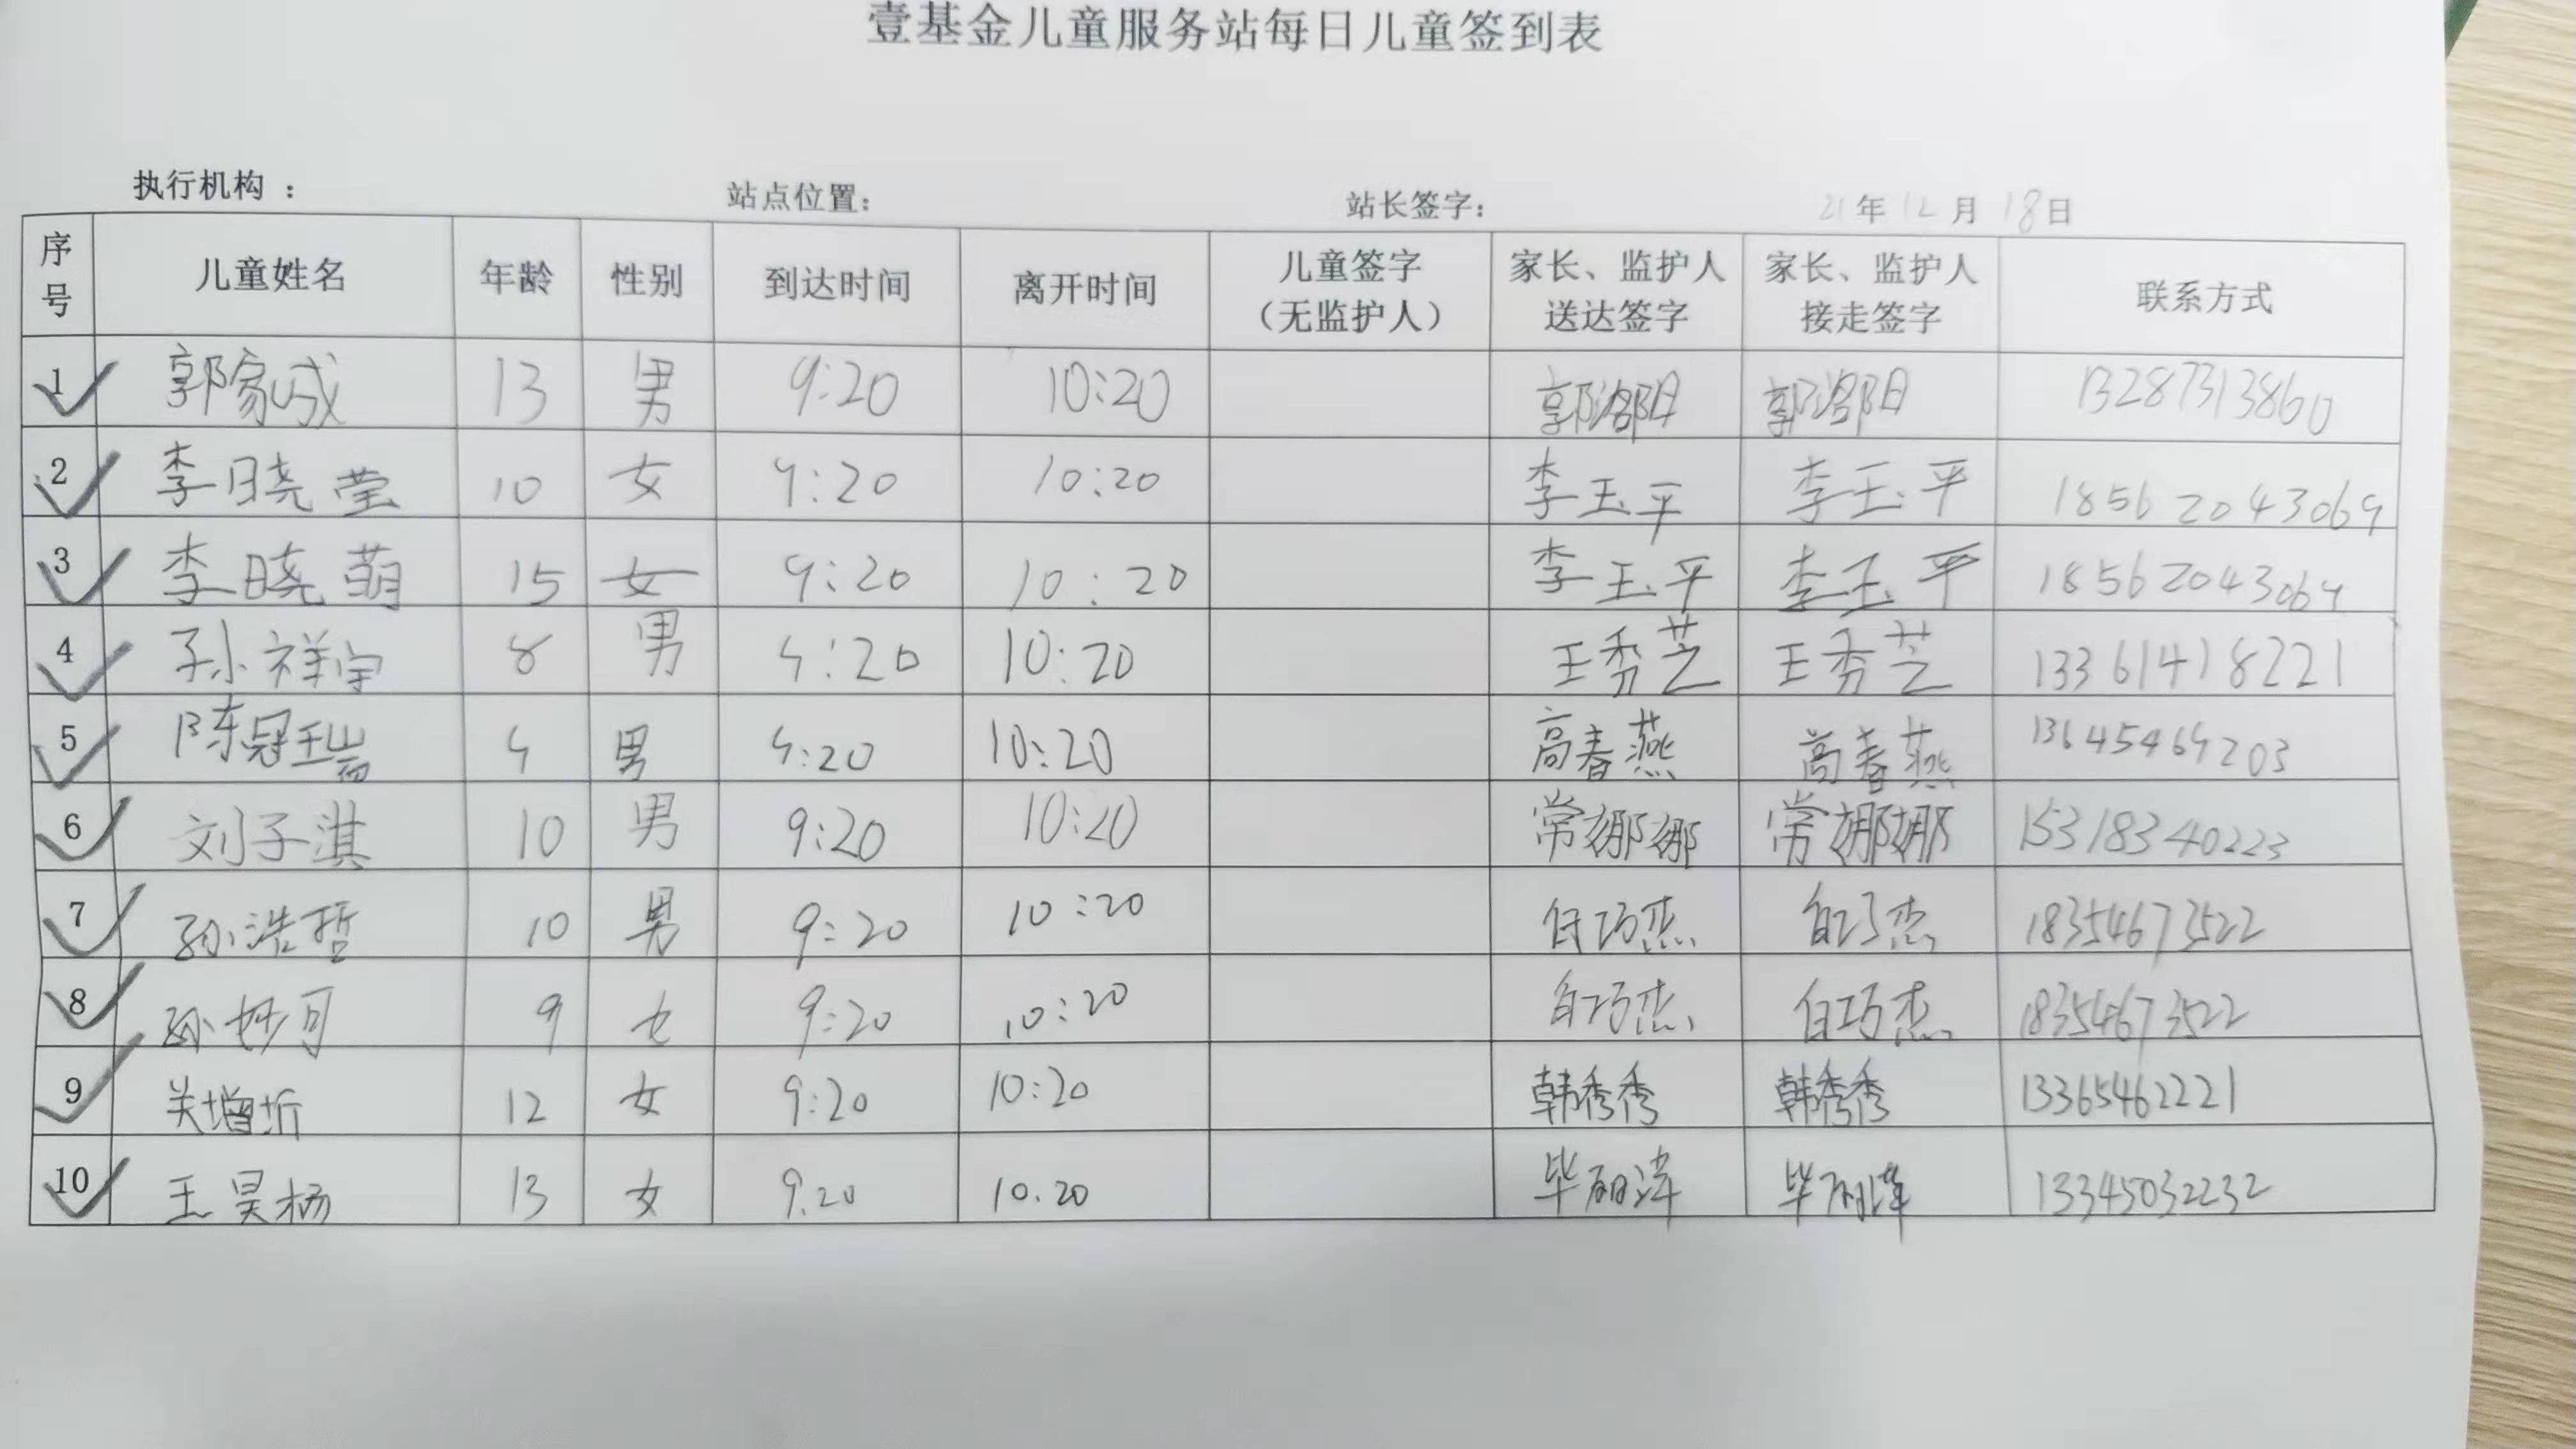 壹基金儿童服务站每日儿童签到表
执行机构： 站点位置： 站长签字： 21年12月18日
序号 儿童姓名 年龄 性别 到达时间 离开时间 儿童签字（无监护人） 家长、监护人送达签字 家长、监护人接走签字 联系方式
1 郭家成 13 男 9:20 10:20 郭洛阳 郭洛阳 13287313860
2 李晓莹 10 女 9:20 10:20 李玉平 李玉平 18562043069
3 李晓萌 15 女 9:20 10:20 李玉平 李玉平 18562043069
4 孙祥宇 8 男 9:20 10:20 王秀芝 王秀芝 13361418221
5 陈冠 9 男 9:20 10:20 高春燕 高春燕 13645469203
6 刘子淇 10 男 9:20 10:20 常娜娜 常娜娜 15318340223
7 孙浩哲 10 男 9:20 10:20 巧杰 杰 18354673522
8 孙妙可 9 女 9:20 10:20 白巧杰 白巧杰 18354673522
9 关增圻 12 女 9:20 10:20 韩秀秀 韩秀秀 13365462221
10 王昊杨 13 女 9.20 10.20 毕 毕 13345032232